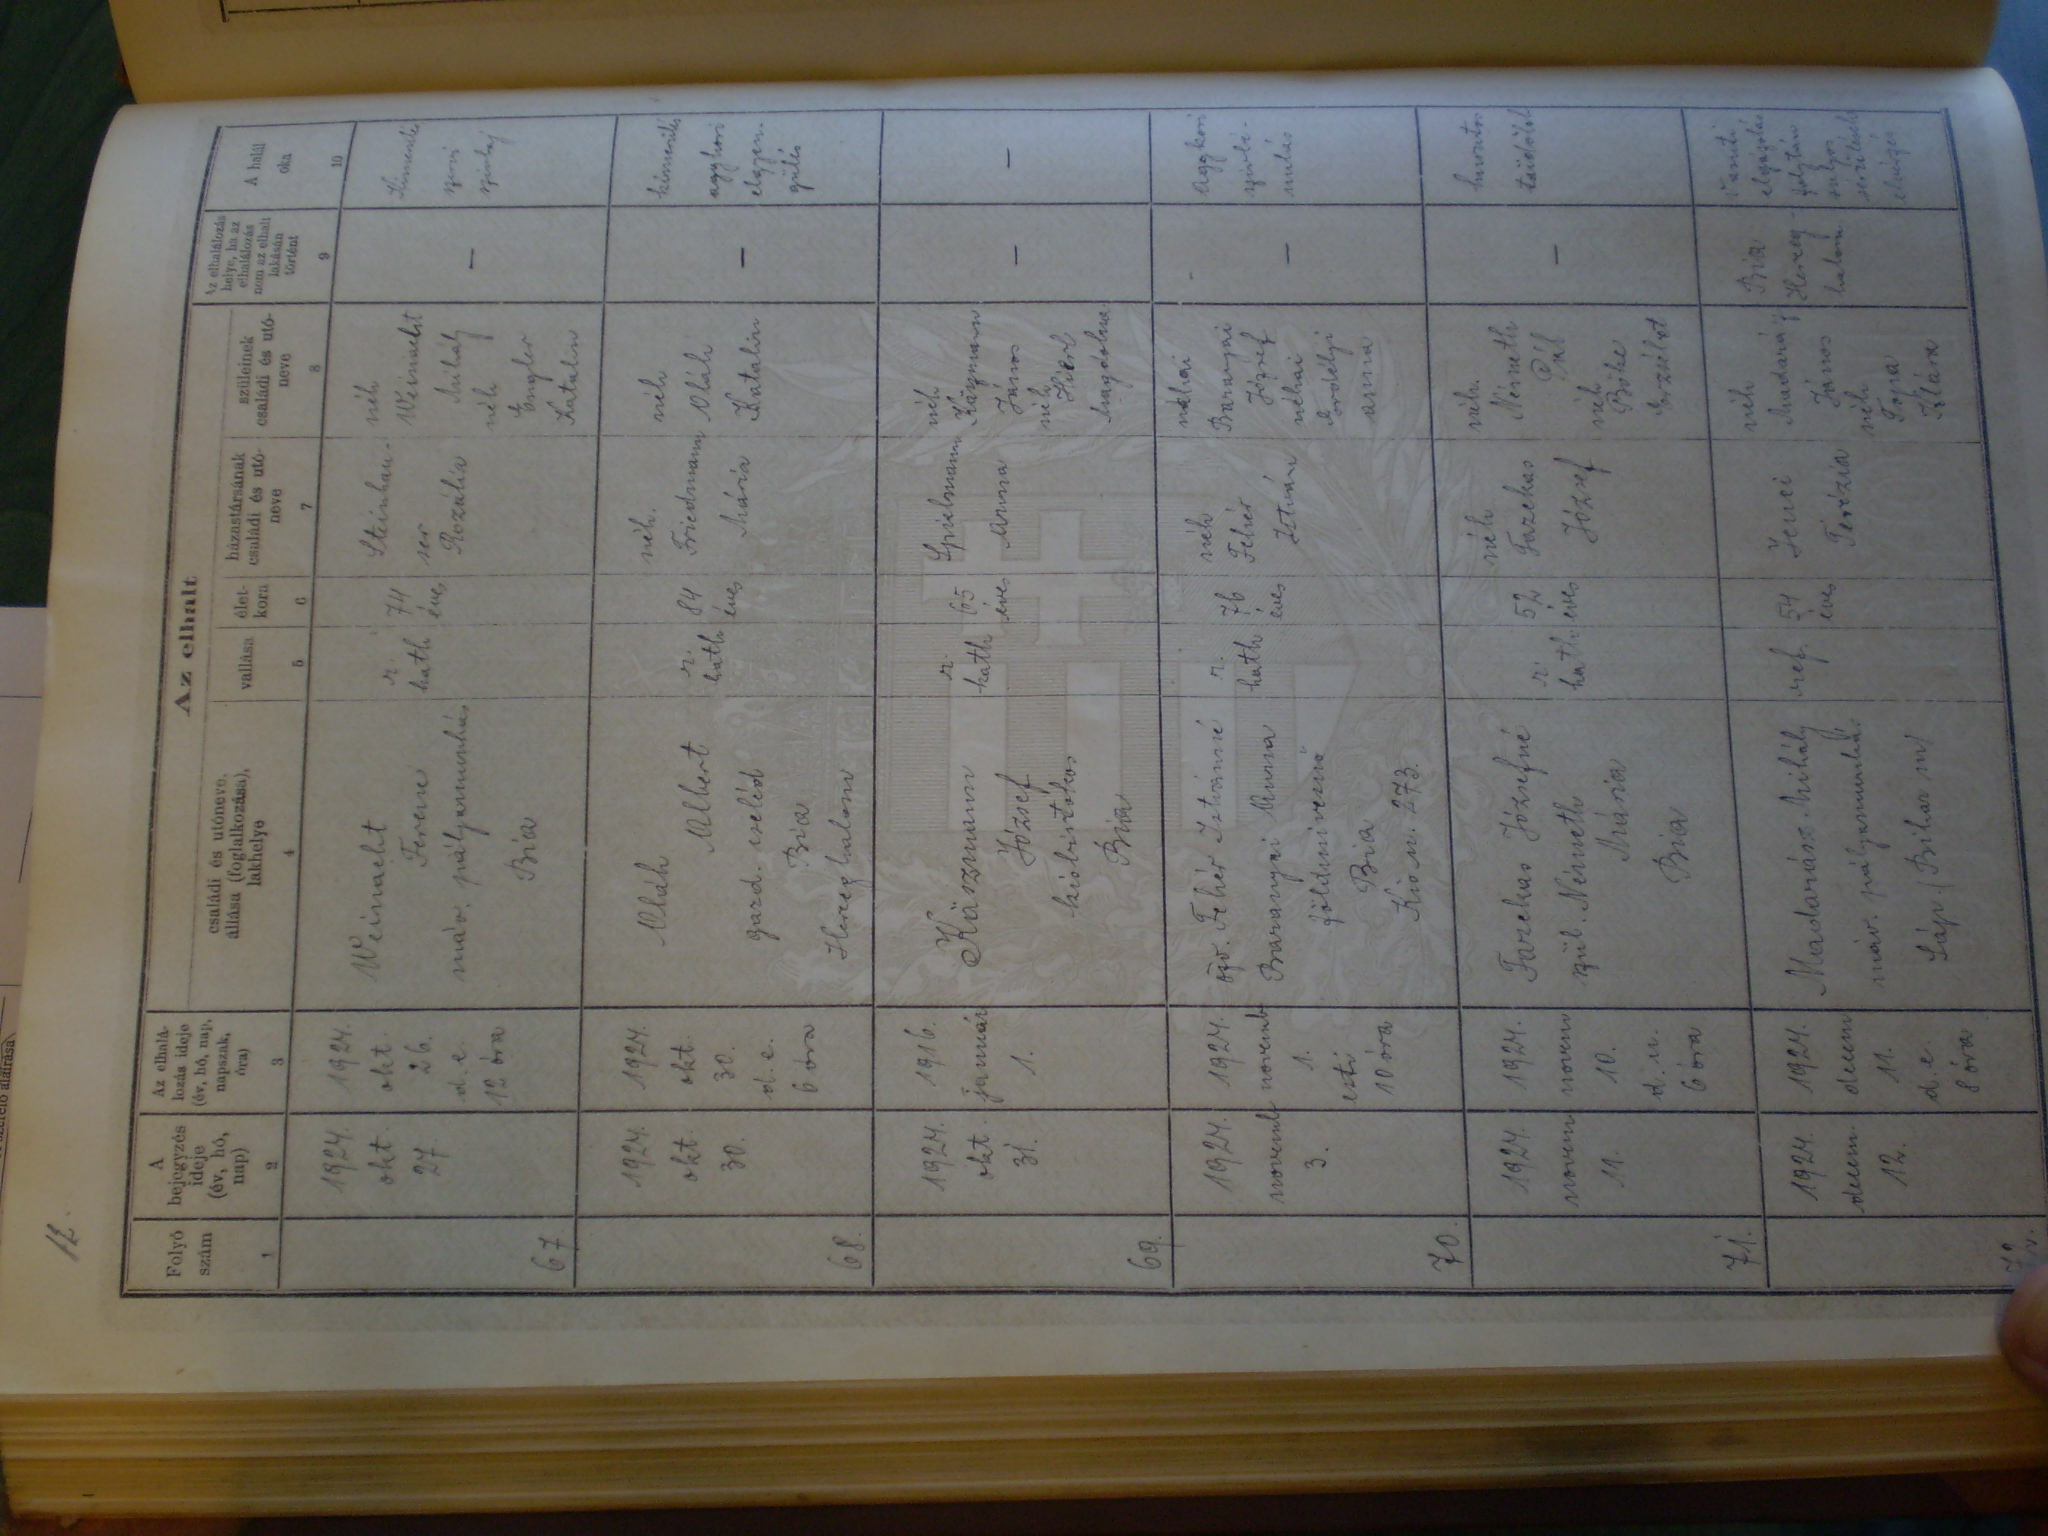 12.
Az elhalt
Folyó
szám
1
A
bejegyzés
ideje
(év, hó,
nap)
2
Az elhalá-
lozás ideje
(év, hó, nap,
napszak,
óra)
3
családi és utóneve,
állása (foglalkozása),
lakhelye
4
vallása
5
élet-
kora
6
házastársának
családi és utó-
neve
7
szüleinek
családi és utó-
neve
8
Az elhalálozás
helye, ha az
elhalálozás
nem az elhalt
lakásán
történt
9
A halál
oka
10
67
1924.
okt.
27
1924.
okt.
26.
d. e.
12 óra
Weinacht
Ferenc
máv. pályamunkás
Bia
r.
kath
74
éves
Steinhau-
ser
Rozália
néh
Weinacht
Mihály
néh
Engler
Katalin
—
szivbaj
68.
1924.
okt.
30.
1924.
okt.
30.
d. e.
6 óra
Oláh
Albert
gazd. cseléd
Bia
Herceghalom
r.
kath
84
éves
néh.
Friedmann
Mária
néh
Oláh
Katalin
—
kimerülés
aggkori
elgyen-
gülés
69.
1924.
okt.
31.
1916.
január
1.
Käszmann
József
kisbirtokos
Bia
r.
kath
65
éves
Spielmann
Anna
néh
Käszmann
János
néh
Hierl
Magdolna
—
—
70.
1924.
novemb
3.
1924.
novemb
1.
esti
10 óra
özv. Fehér Istvánné
Baranyai Anna
földmivesnő
Bia
Kis u. 273.
r.
kath
76
éves
néh
Fehér
István
néhai
Baranyai
József
néhai
Erdélyi
Anna
—
Aggkori
szivbé-
nulás
71.
1924.
novem
11.
1924.
novem
10.
d. u.
6 óra
Fazekas Józsefné
szül. Németh
Mária
Bia
r.
kath
52
éves
néh
Fazekas
József
néh.
Németh
Pál
néh
Böke
Erzsébet
—
72
1924.
decem.
12.
1924.
decem
11.
d. e.
8 óra
Madarász Mihály
máv. pályamunkás
Sáp (Bihar m)
ref
54
éves
Jenei
Terézia
néh
Madarász
János
néh
Tona
Klára
Bia
Herceg-
halom
Vonat
elgázolás
folytán
súlyos
sérülések